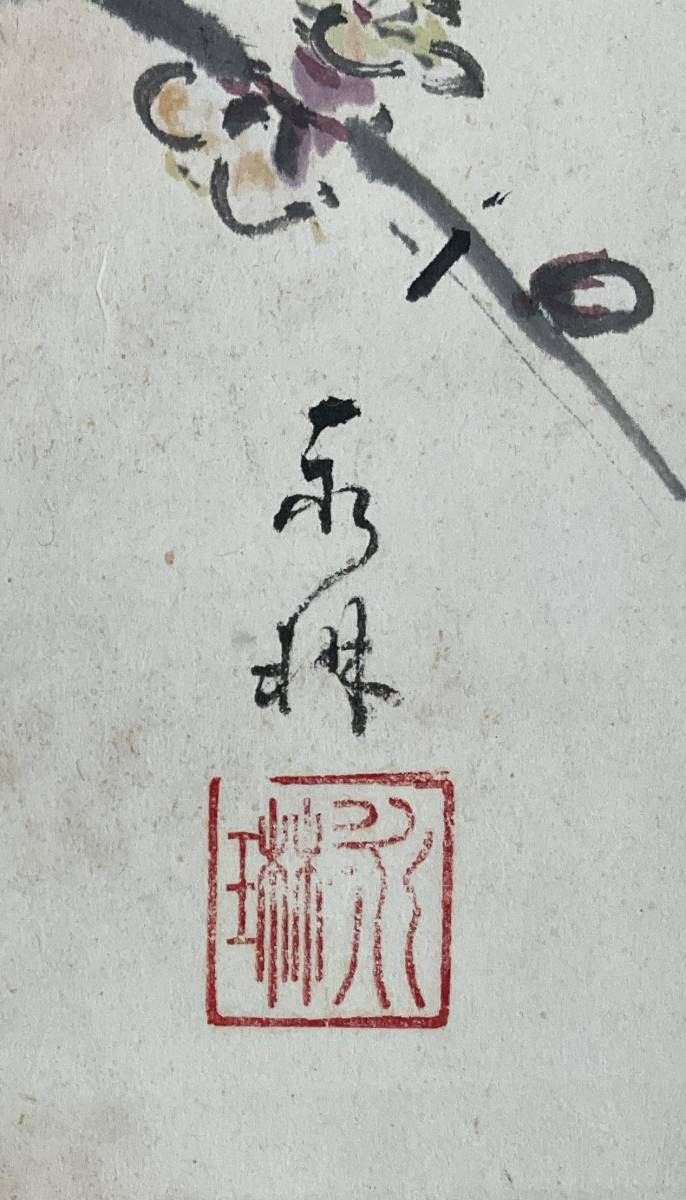 永琳
永琳